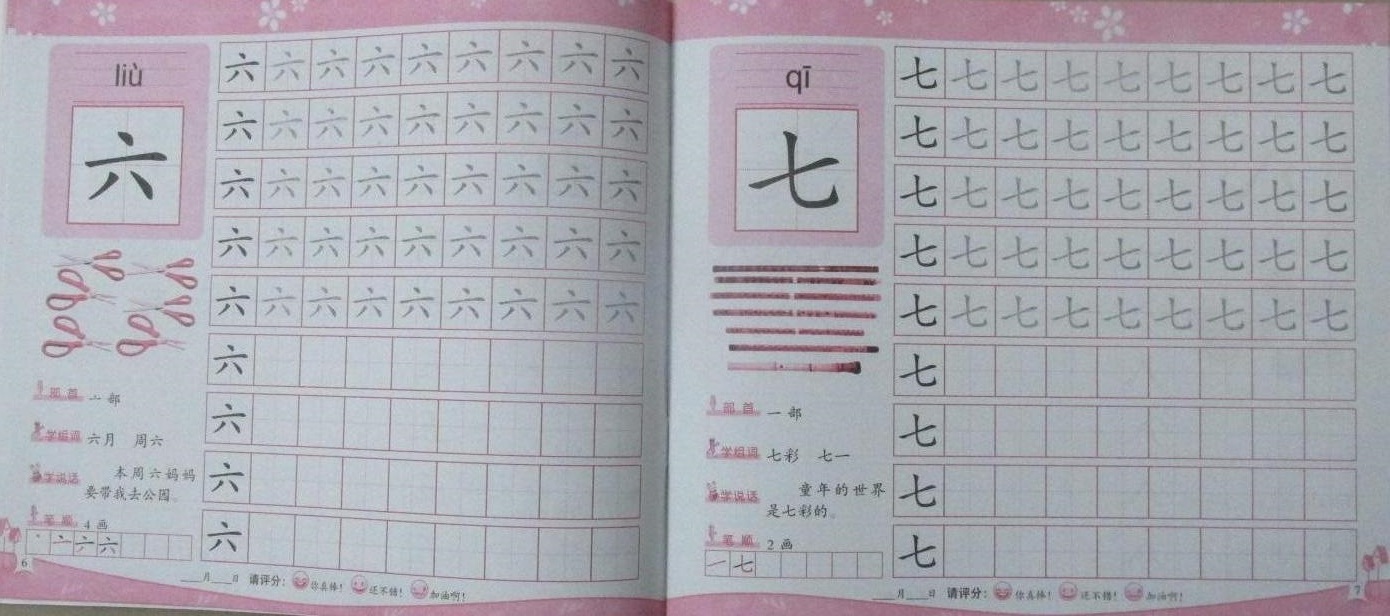 liù
六
六 六 六 六 六 六 六 六 六
六 六 六 六 六 六 六 六 六
六 六 六 六 六 六 六 六 六
六 六 六 六 六 六 六 六 六
六 六 六 六 六 六 六 六 六
六
六
六
六
部首 亠部
学组词 六月 周六
学说话 本周六妈妈
要带我去公园。
笔顺 4画
丶 亠 六 六
6
月 日 请评分: 你真棒! 还不错! 加油啊!
qī
七
七 七 七 七 七 七 七 七 七
七 七 七 七 七 七 七 七 七
七 七 七 七 七 七 七 七 七
七 七 七 七 七 七 七 七 七
七 七 七 七 七 七 七 七 七
七
七
七
七
部首 一部
学组词 七彩 七一
学说话 童年的世界
是七彩的。
笔顺 2画
一 七
月 日 请评分: 你真棒! 还不错! 加油啊!
7